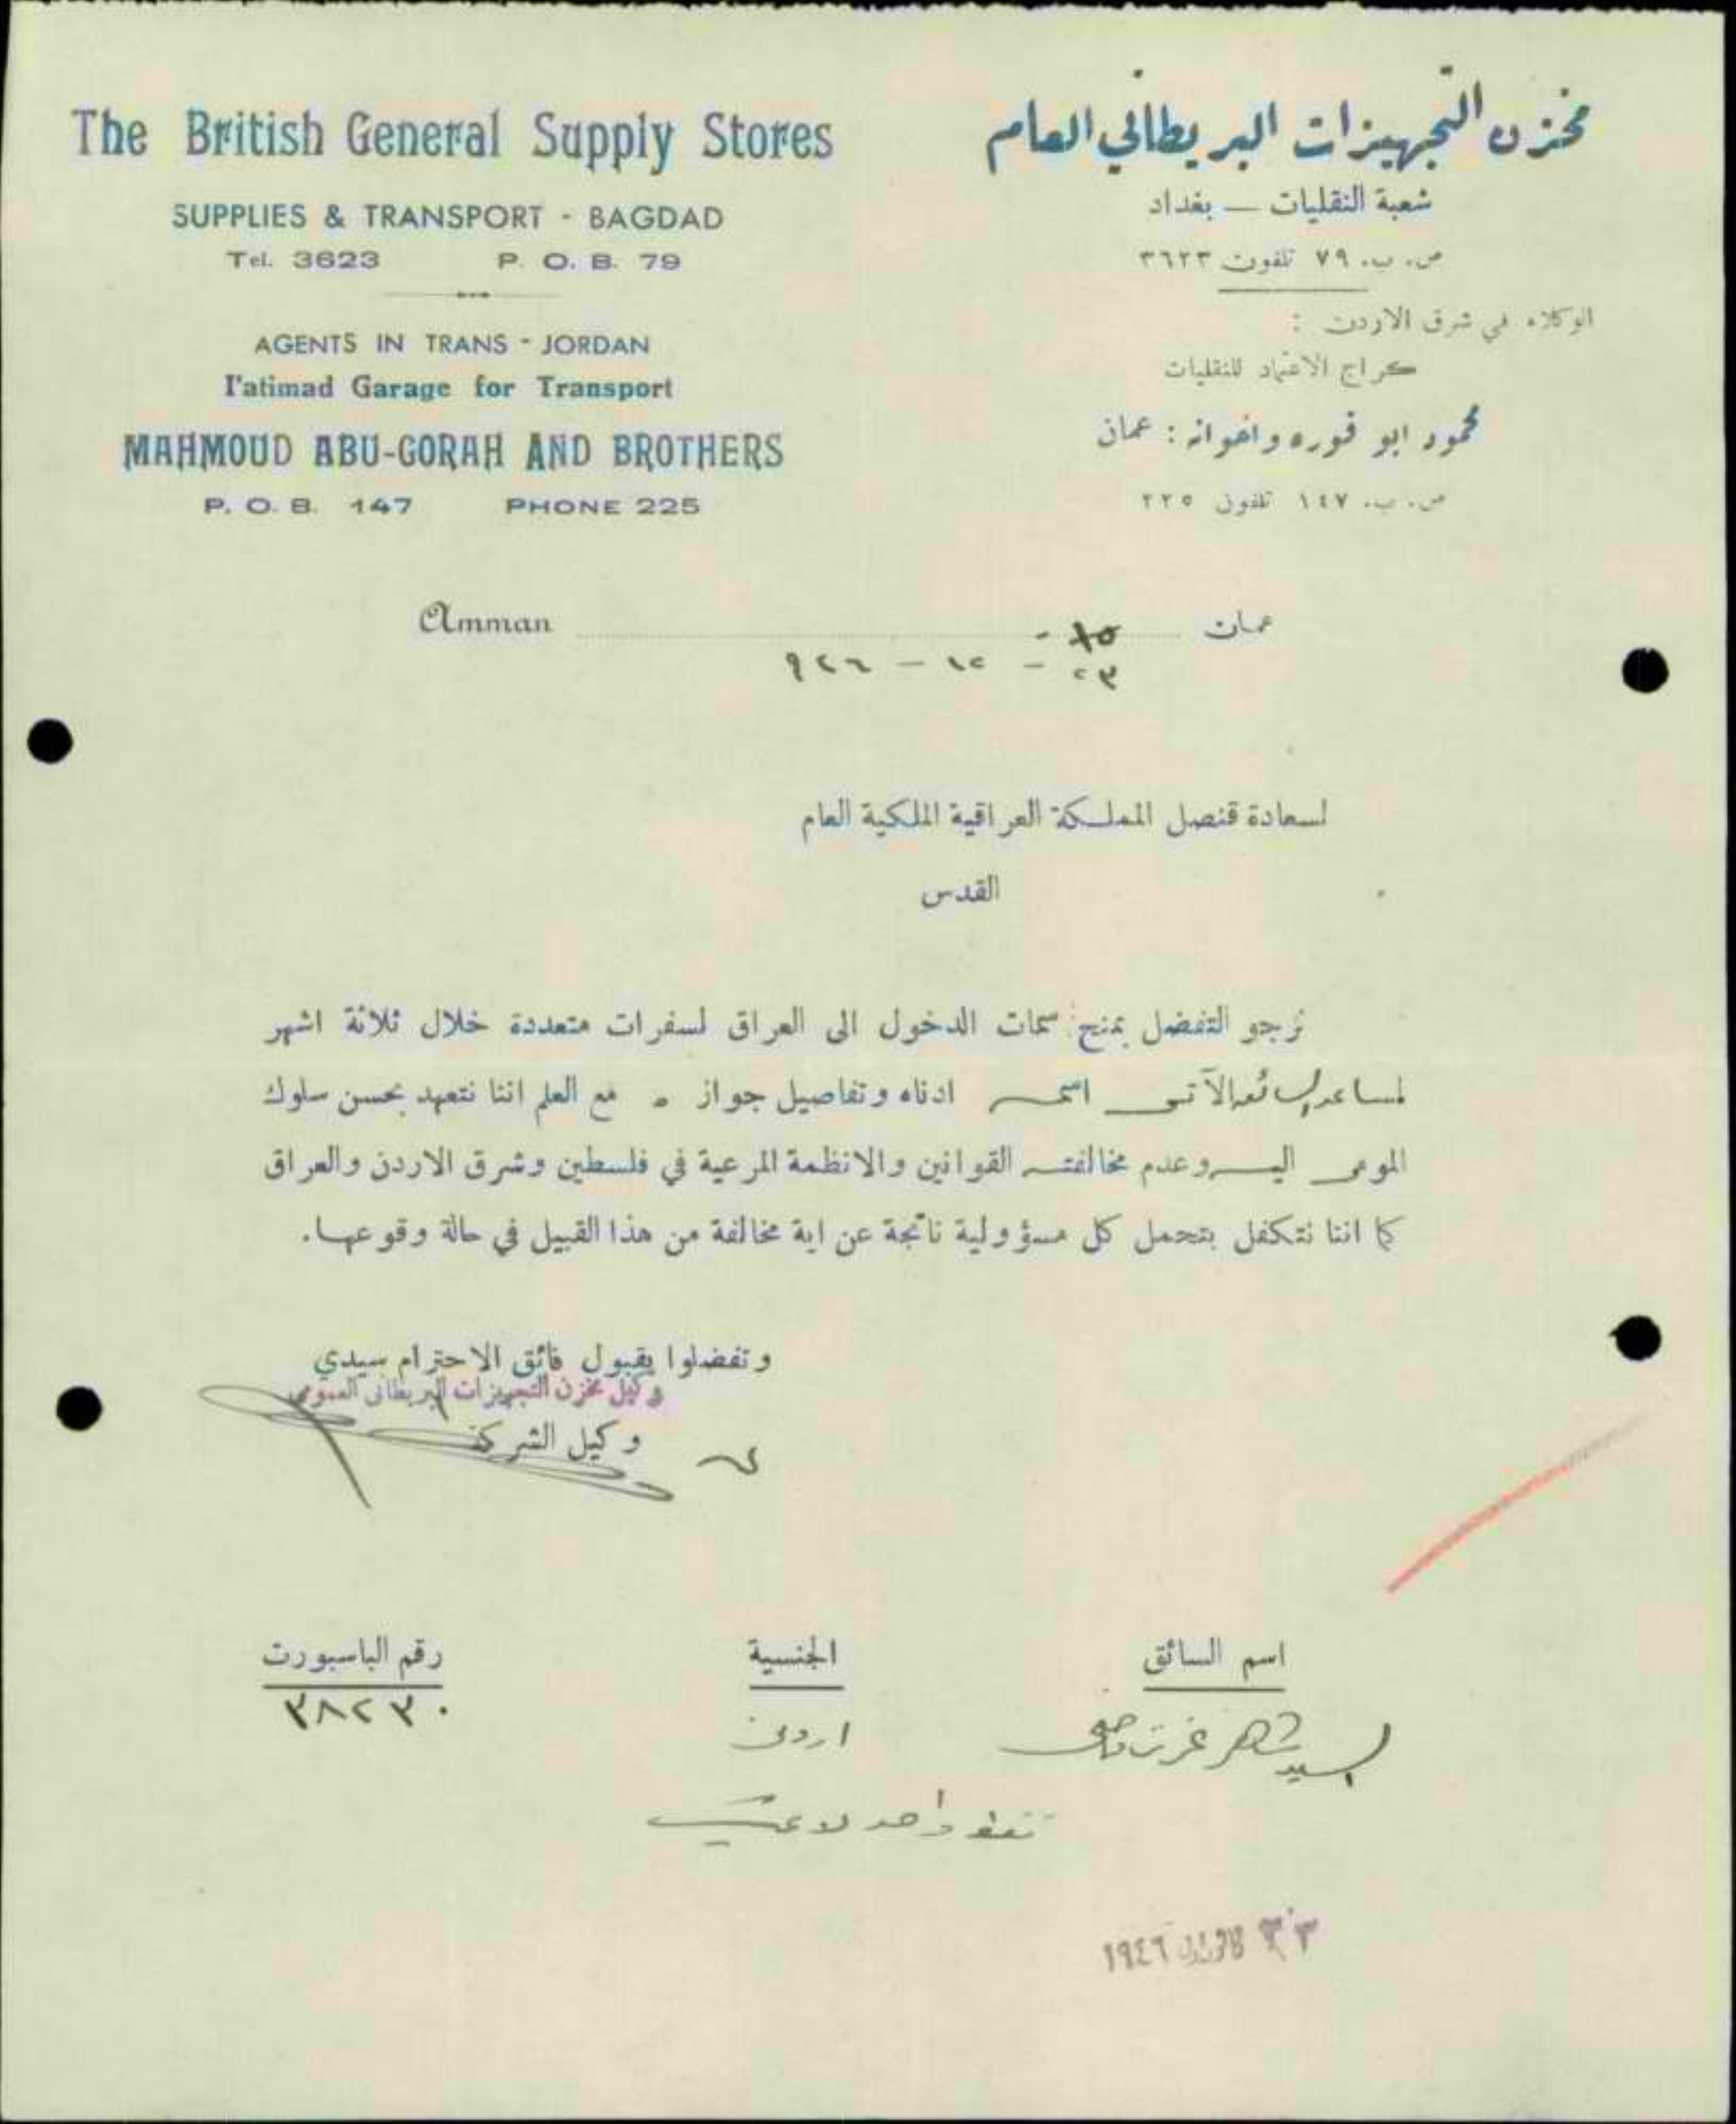 The British General Supply Stores
SUPPLIES & TRANSPORT - BAGDAD
Tel. 3623 P. O. B. 79
AGENTS IN TRANS - JORDAN
I'atimad Garage for Transport
MAHMOUD ABU-GORAH AND BROTHERS
P. O. B. 147 PHONE 225
مخزن التجهيزات البريطاني العام
شعبة النقليات — بغداد
ص. ب. ٧٩ تلفون ٣٦٢٣
الوكلاء في شرق الاردن :
كراج الاعتماد للنقليات
محمود ابو قوره واخوانه : عمان
ص. ب. ١٤٧ تلفون ٢٢٥
Amman عمان
٢٣ - ١٢ - ٩٤٦
لسعادة قنصل المملكة العراقية الملكية العام
القدس
نرجو التفضل بمنح سمات الدخول الى العراق لسفرات متعددة خلال ثلاثة اشهر
لمساعد السائق الآتى اسمه ادناه وتفاصيل جوازه مع العلم اننا نتعهد بحسن سلوك
المومى اليه وعدم مخالفته القوانين والانظمة المرعية في فلسطين وشرق الاردن والعراق
كما اننا نتكفل بتحمل كل مسؤولية ناتجة عن اية مخالفة من هذا القبيل في حالة وقوعها.
وتفضلوا بقبول فائق الاحترام سيدي
وكيل مخزن التجهيزات البريطاني العمومي
وكيل الشركة
اسم السائق الجنسية رقم الباسبورت
السيد عزت اردني ٣٨٢٣٠
فقط واحد لا غير
١٩٤٦